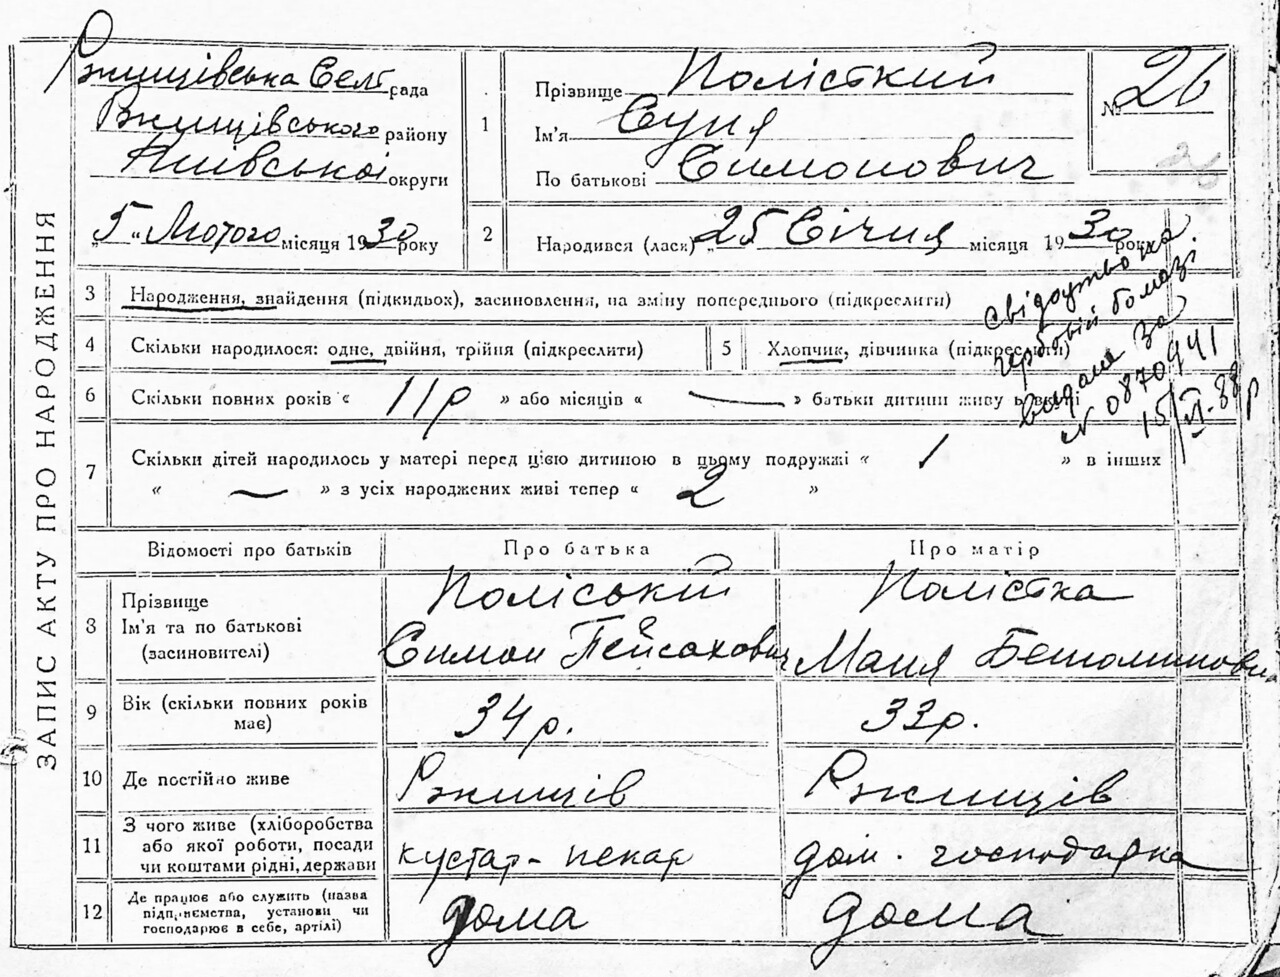 ЗАПИС АКТУ ПРО НАРОДЖЕННЯ
Ржищівська Селт рада
Ржищівського району
Київської округи
„5" Лютого місяця 1930 року
1
Прізвище Полісткий
Ім'я Суня
По батькові Симонович
№ 26
26
2
Народився (лась) „25 Січня місяця 1930 року
Свідоцтво на
гербовій бомазі
видане за
N 0870941
15/VI-38р
3 Народження, знайдення (підкидьох), засиновлення, на зміну попереднього (підкреслити)
4 Скільки народилося: одне, двійня, трійня (підкреслити)
5 Хлопчик, дівчинка (підкреслити)
6 Скільки повних років « 11р » або місяців « — » батьки дитини живуть вкупі
7 Скільки дітей народилось у матері перед цією дитиною в цьому подружжі « 1 » в інших
« — » з усіх народжених живі тепер « 2 »
Відомості про батьків Про батька Про матір
8
Прізвище
Ім'я та по батькові
(засиновителі)
Поліський
Симон Пейсахович
Полістка
Маня
9 Вік (скільки повних років
має)
34р.
33р.
10 Де постійно живе Ржищів Ржищів
11
З чого живе (хліборобства
або якої роботи, посади
чи коштами рідні, держави
кустар-пекар
дом. господарка
12
Де працює або служить (назва
підприємства, установи чи
господарює в себе, артілі)
дома
дома